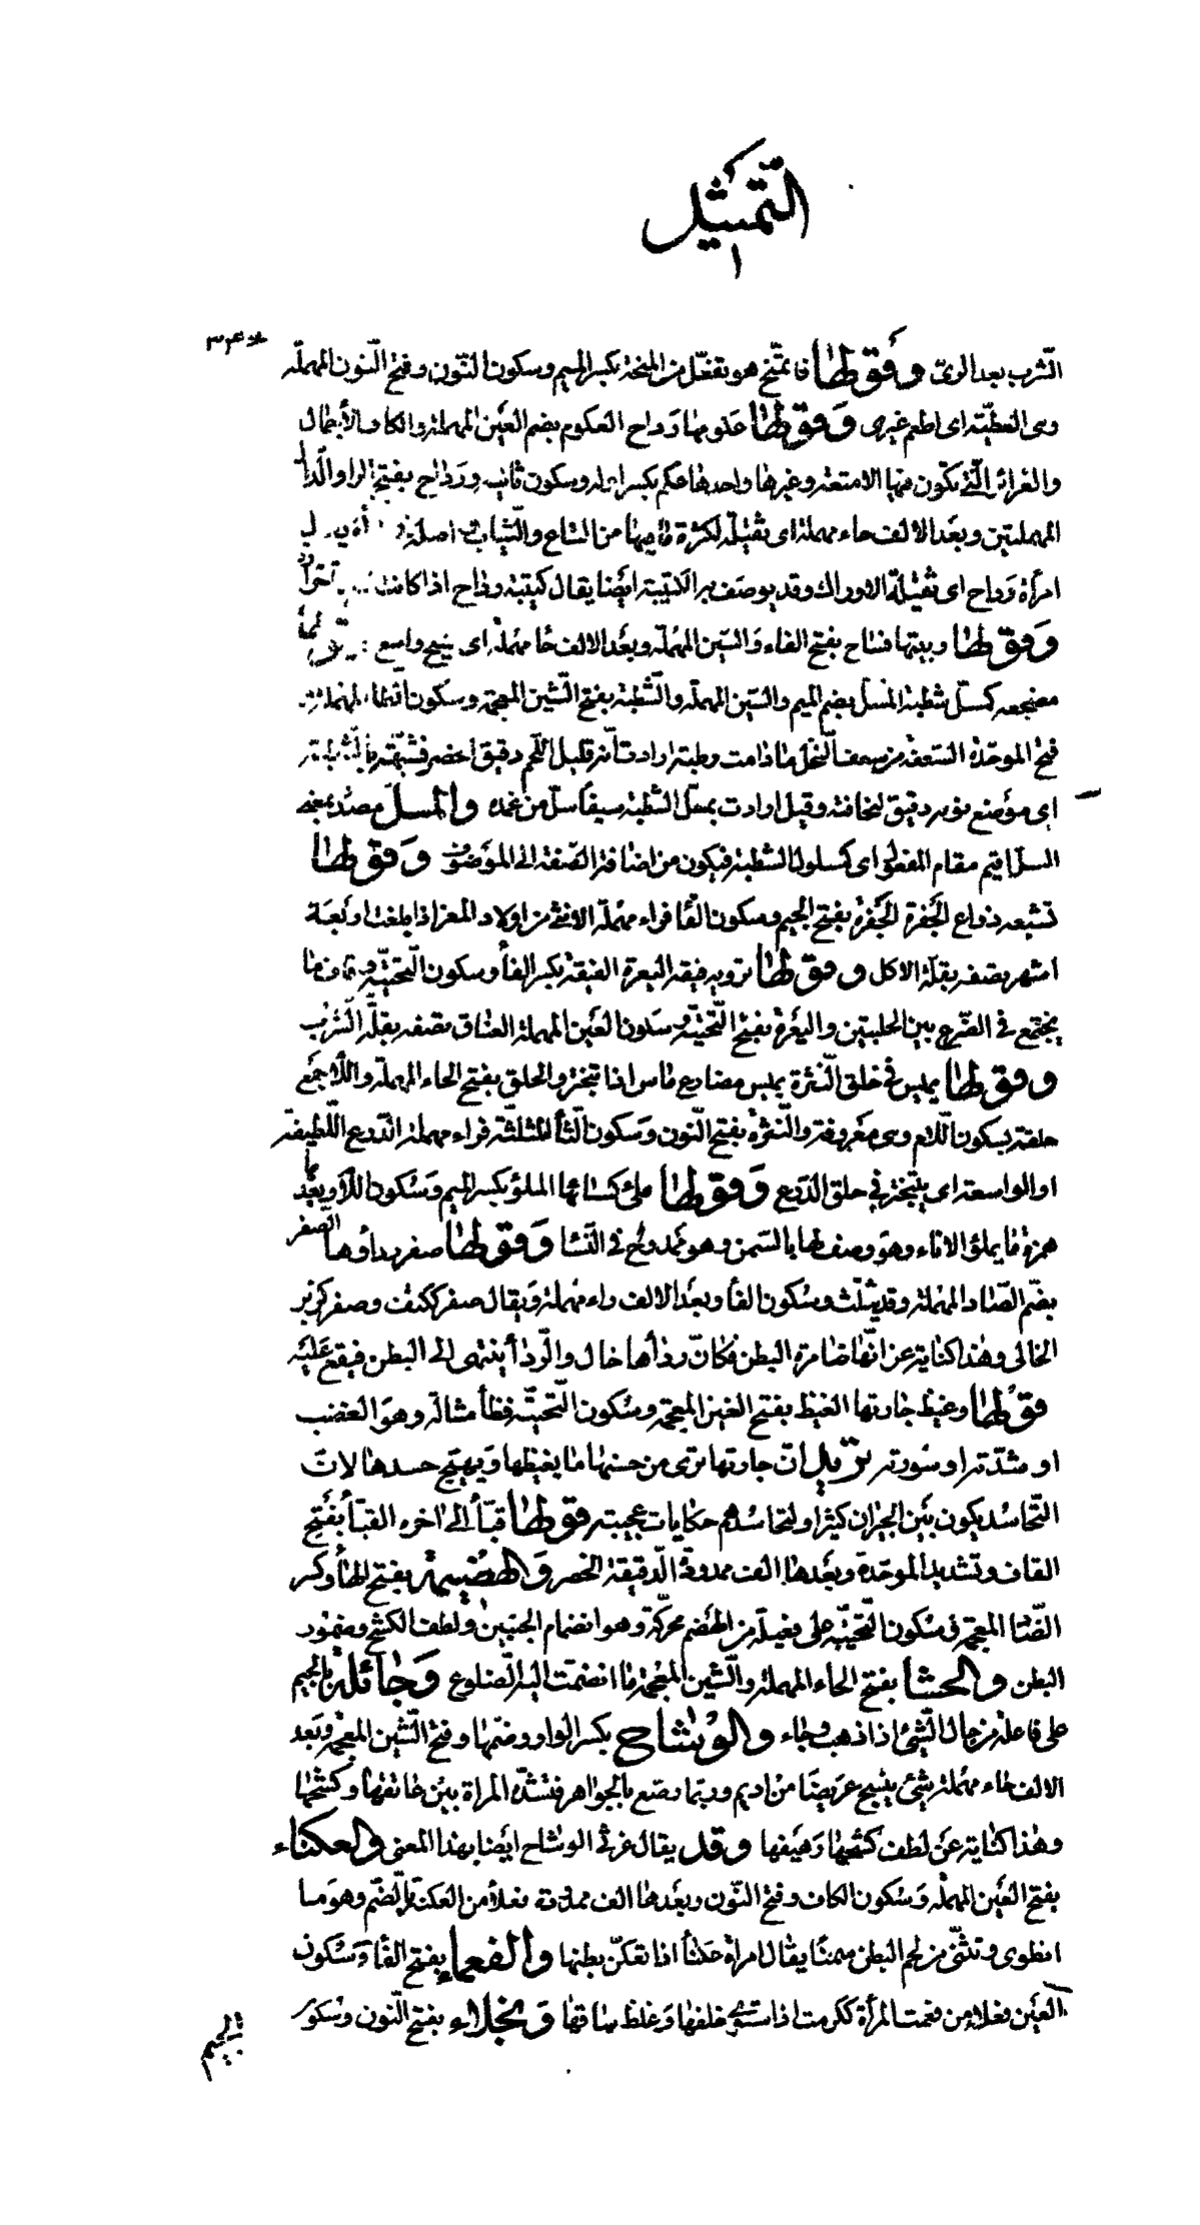 التمثيل
١
٣٤٠
الشرب بعد الرى وَقولها فاتمنح هو تفعّل من المنحة بكسر الميم وسكون النّون وفتح النّون المهملة
وهى العطيّة اى اطعم غيرى وَقولها عكومها رَداح العكوم بضم العين المهملة والكاف الأجمال
والغرائر الّتى تكون فيها الامتعة وغيرها واحدها عكم بكسر اوله وسكون ثانيه وَرَداح بفتح الراء والدال
المهملتين وبعد الالف حاء مهملة اى ثقيلة لكثرة ما فيها من المتاع والثياب اصله
امرأة رَداح اى ثقيلة الاوراك وقد يوصف به الكتيبة ايضا يقال كتيبة رداح اذا كانت
وَقولها وبيتها فساح بفتح الفاء وَالسّين المهملة وبعد الالف حا مهملة اى فسيح واسع
مضجعه كمسل شطبة المسل بضم الميم والسّين المهملة والشّطبة بفتح الشين المعجمة وسكون الطاء المهملة
فتح الموحّدة السّعفة من سعف النّخل ما دامت رطبة ارادت انّه قليل اللّحم دقيق الخصر فشبّهته بالشطبة
اى موضع نومه دقيق لنحافته وقيل ارادت بمسل الشطبة سيفا سلّ من غمده والمسلّ مصدر بمعنى
السل اقيم مقام المفعول اى كمسلول الشطبة فيكون من اضافة الصّفة الى الموصوف وَقولها
تشبعه ذراع الجَفرة الجَفرة بفتح الجيم وسكون الفا فراء مهملة الانثى من اولاد المعز اذا بلغت اربعة
اشهر تصفه بقلّة الاكل وقولها ترويه فيقة اليعرة الفيقة بكسر الفاء وسكون التّحتيّة وقاف ما
يجتمع فى الضّرع بين الحلبتين واليَعْرة بفتح التّحتيّة وسكون العين المهملة العناق تصفه بقلّة الشرب
وقولها يميس فى حلق النّثرة يميس مضارع ماس اذا تبختر والحلق بفتح الحاء المهملة واللّام جمع
حلقة بسكون اللّام وهى معروفة والنّثرة بفتح النّون وَسكون الثّاء المثلّثة فراء مهملة الدّرع اللّطيفة
او الواسعة اى يتبختر فى حلق الدّرع وَقولها ملئ كسائها الملؤ بكسر الميم وَسُكون اللّام وبعدها
همزة ما يملؤ الاناء وهو وصف لها بالسّمن وهو ممدوح فى النّسا وَقولها صفر ردأوها الصّفر
بضمّ الصّاد المهملة وقد يثلّث وسُكون الفا وبعد الالف راء مهملة وَيقال صفر ككتف وصفر كزبر
الخالى وهذا كناية عن انّها ضامرة البطن فكانّ ردأها خال والرّدأ ينتهى الى البطن فيقع عَليه
قولها وغيظ جارتها الغيظ بفتح الغين المعجمة وسُكون التّحتيّة فظأ مشالة وهوَ الغضب
او شدّته او سُورته تريد انّ جارتها ترى من حسنها ما يغيظها وَيهيّج حسدها لانّ
التّحاسُد يكون بين الجيران كثيرا ولتحاسُدهم حكايات عجيبة قولها قبّأ الى اخره القبّأ بفتح
القاف وتشديد الموحّدة وبعدها الف ممدودة الدّقيقة الخصر وَالهضيمة بفتح الهأ وكسر
الضّا المعجمة وسُكون التّحتيّة على فعيلة من الهَضَم محرّكة وهو انضمام الجنبين ولطف الكشح وضمُور
البطن والحشا بفتح الحاء المهملة والشّين المعجمة ما انضمّت اليه الضّلوع وَجائلة بالجيم
على فاعلة من جال الشّئ اذا ذهب وجاء والوشاح بكسر الواو وضمّها وفتح الشّين المعجمة وبَعد
الالف حاء مهملة شئ ينسج عريضا من اديم وربّما رصّع بالجواهر فتشدّه المرأة بين عاتقها وكشحها
وهٰذا كناية عن لطف كشحها وَهيفها وقد يقال غرثى الوشاح ايضا بهذا المعنى والعكناء
بفتح العَين المهملة وَسُكون الكاف وفتح النّون وبعدها الف ممدودة فعلأ من العكنة بالضّم وهوَ ما
انطوى وتثنّى من لحم البطن سمنًا يقال امرأة عَكنأ اذا تعكّن بطنها والفعماء بفتح الفأ وَسُكون
العَين فعلاء من فعمت المرأة ككرمت اذا استوى خلقها وَغلظ ساقها وَنجلاء بفتح النّون وسُكون
بالجيم